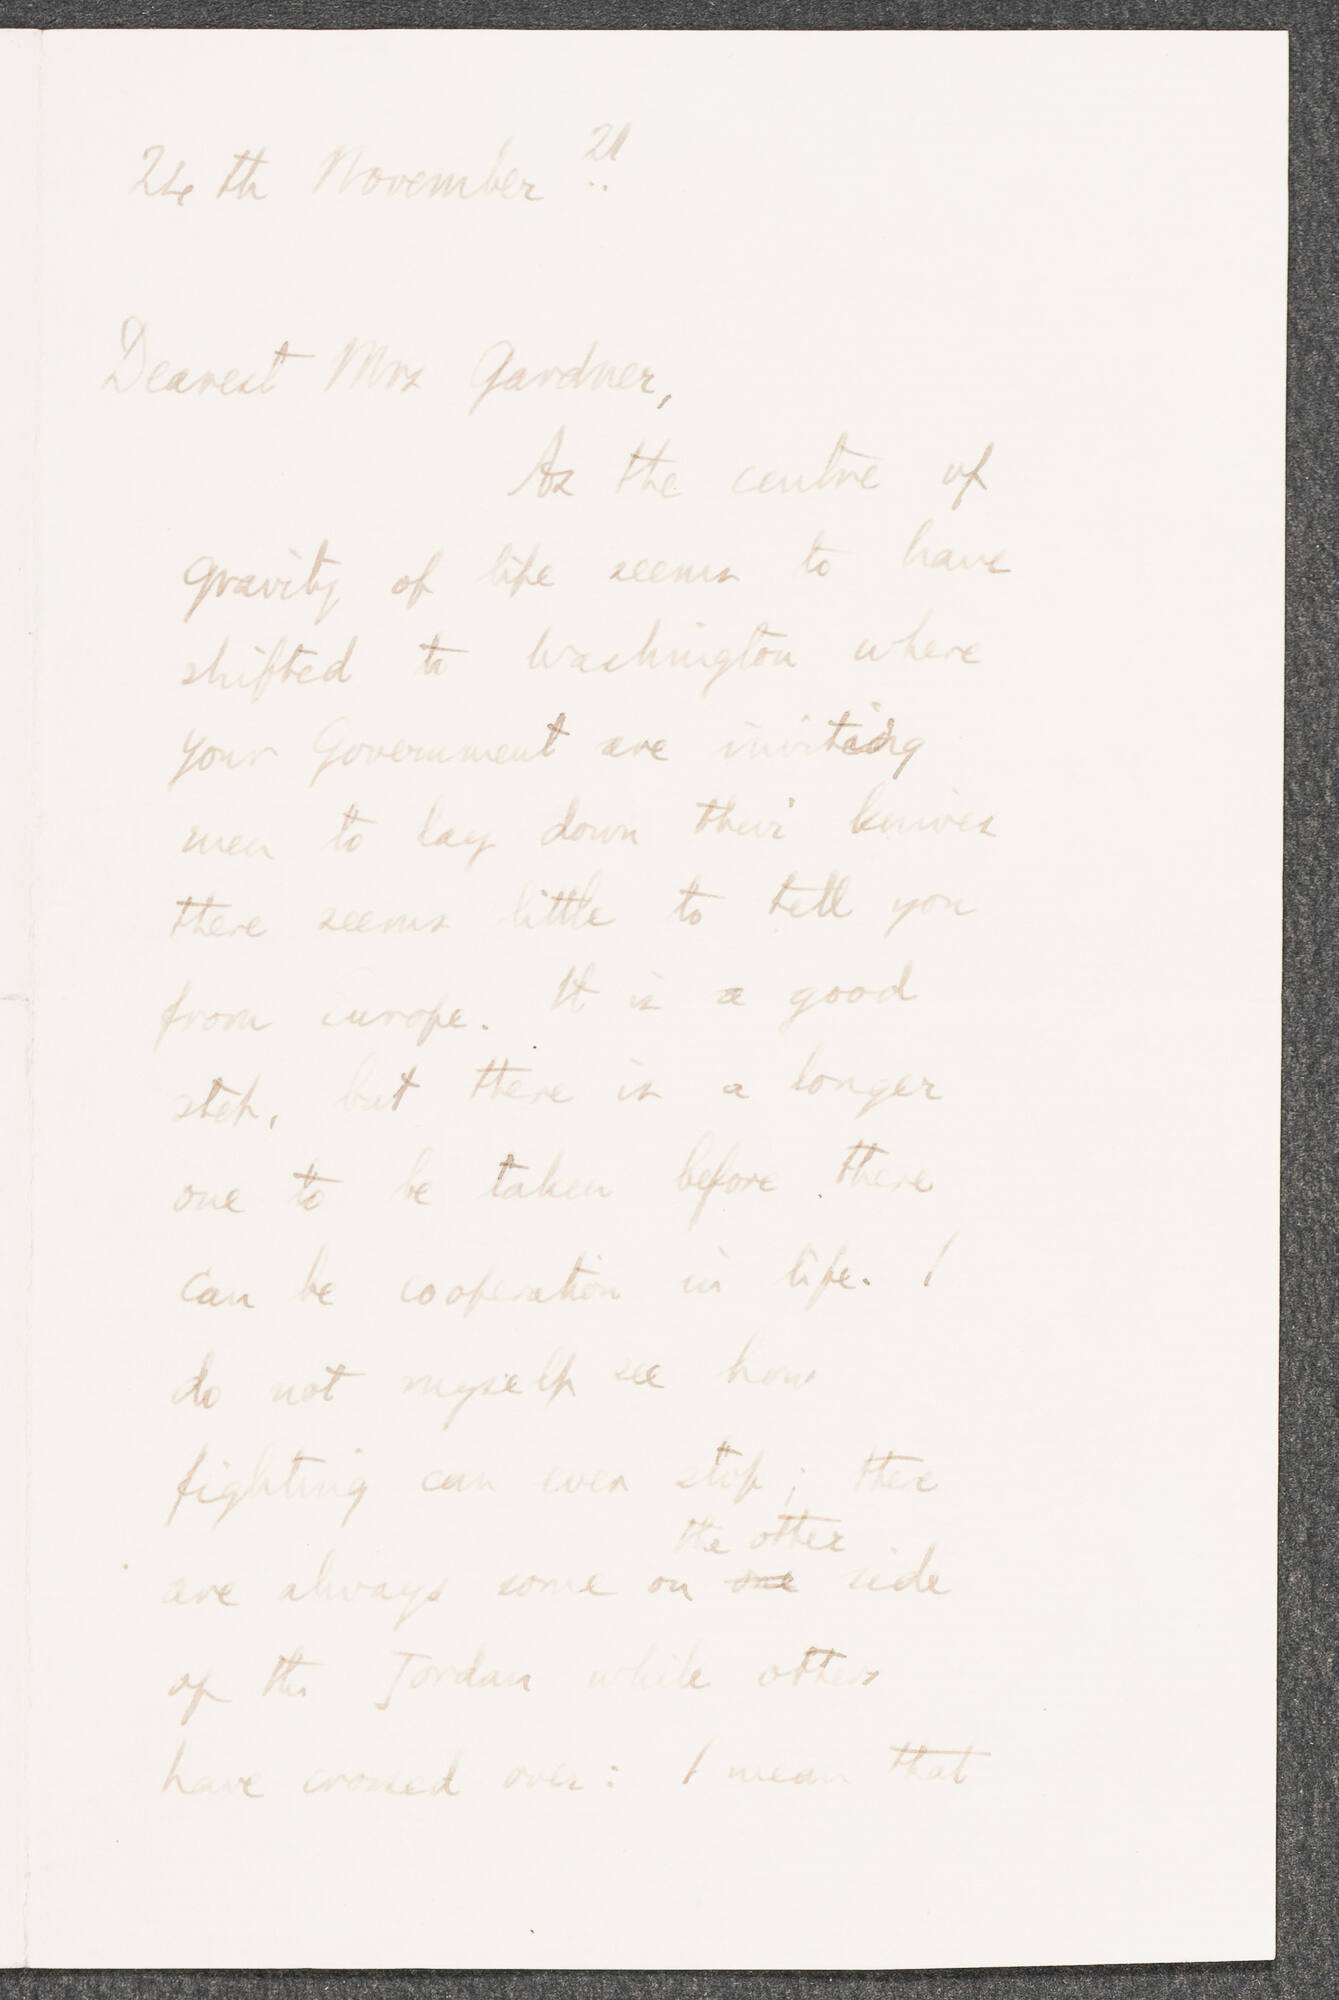 24th November 21
Dearest Mrs Gardner,
As the centre of
gravity of life seems to have
shifted to Washington where
your Government are inviting
men to lay down their knives
there seems little to tell you
from Europe. It is a good
step, but there is a longer
one to be taken before there
can be cooperation in life. I
do not myself see how
fighting can ever stop; there
the other
are always some on one side
of the Jordan while others
have crossed over: I mean that